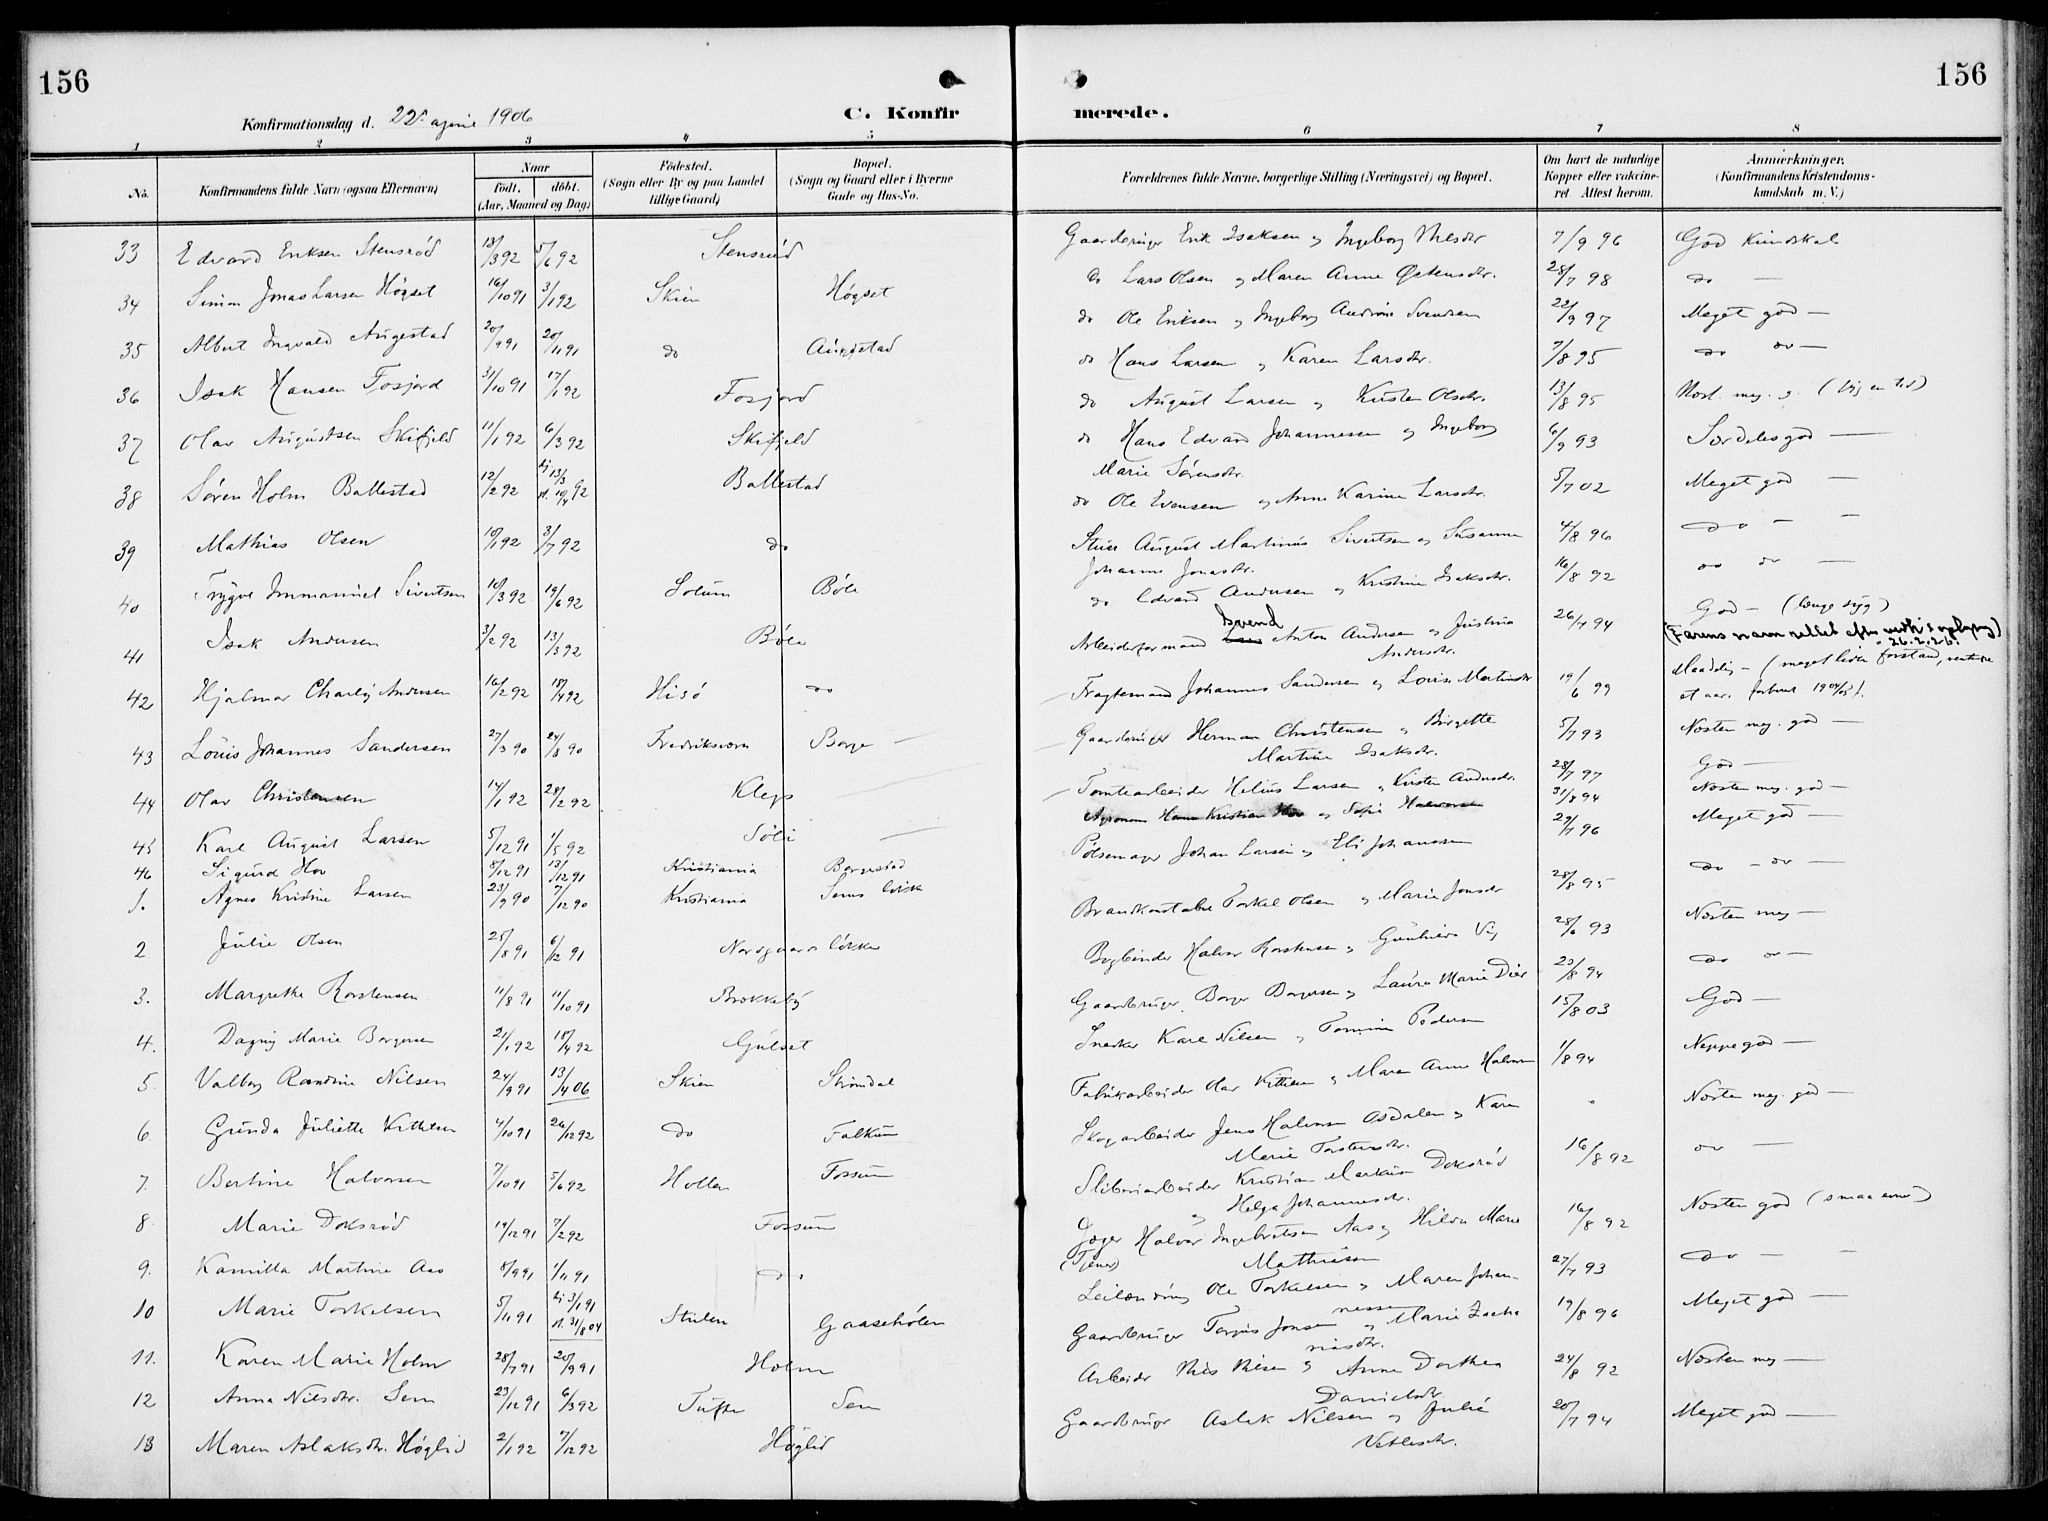 156
156
Konfirmationsdag d. 22. april 1906
C. Konfir
merede.
1 2 3 4 5 6 7 8
No.
Konfirmandens fulde Navn (ogsaa Efternavn)
Naar
födt. döbt.
(Aar, Maaned og Dag)
Födested.
(Sogn eller By og paa Landet
tillige Gaard)
Bopæl.
(Sogn og Gaard eller i Byerne
Gade og Hus-No.
Forældrenes fulde Navne, borgerlige Stilling (Næringsvei) og Bopæl.
Om havt de naturlige
Kopper eller vakcine-
ret Attest herom.
Anmærkninger.
(Konfirmandens Kristendoms-
kundskab m. V.)
33 Edvard Eriksen Stensrød 18/3 92 5/6 92 Stensrud Gaardbruger Erik Isaksen og Ingeborg Nilsdtr 7/9 96 God Kundskab
34 Simon Jonas Larsen Høgset 16/10 91 3/1 92 Skien Høgset do Lars Olsen og Maren Anne Østensdtr. 28/7 98 do —
35 Albert Ingvald Augestad 20/9 91 20/11 91 do Augestad do Ole Eriksen og Ingeborg Andrine Svendsen 22/9 97 Meget god —
36 Isak Hansen Fosjord 31/10 91 17/1 92 Fosjord do Hans Larsen og Karen Larsdtr. 7/8 95 do do —
37 Olav Augustsen Skifjeld 11/1 92 6/3 92 Skifjeld do August Larsen og Kirsten Olsdtr. 13/8 95
38 Søren Holm Ballestad 12/2 92 13/3 92 Ballestad do Hans Edvard Johannessen og Ingeborg Marie Sørensdtr. 6/9 93 Særdeles god —
39 Mathias Olsen 10/1 92 3/7 92 do do Ole Evensen og Anne Karine Larsdtr. 5/7 02 Meget god —
40 Trygve Immanuel Sivertsen 10/3 92 19/6 92 Solum Bøle August Martinus Sivertsen og Susanne Johanne Jonasdtr. 4/8 96 do — —
41 Isak Andersen 3/2 92 13/3 92 Bøle do Edvard Andersen og Kristine Isaksdtr. 16/8 92 do do —
42 Hjalmar Charley Andersen 16/2 92 18/4 92 Hisö do Arbeiderformand Svend Anton Andersen og Justina Andersdtr. 26/7 94 God — (længe syg)
(Farens navn rettet efter
26.2.26.
43 Louis Johannes Sandersen 27/3 90 24/8 90 Fredriksværn Borge — Fragtemand Johannes Sandersen og Lovise Martinsdtr 19/6 99 Maadelig — (meget liden forstand,
et aar. forberedt 1904/05).
44 Olav Christensen 14/1 92 28/2 92 Kleps Gaardbruger Herman Christensen og Birgitte Martine Isaksdtr. 5/7 93 Næsten meg. god —
45 Karl August Larsen 5/12 91 1/5 92 Søli — Tomtearbeider Helius Larsen og Kirsten Andersdtr. 28/7 97 God —
46 Sigurd Hov 5/12 91 13/12 91 Kristiania Borgestad Agronom Hans Kristian Hov og Sofie Halvorsen 31/8 94 Næsten meg. god —
1. Agnes Kristine Larsen 23/9 90 7/12 90 Kristiania Pølsemager Johan Larsen og Eli Johansen 29/7 96 Meget god —
2 Julie Olsen 25/8 91 6/12 91 Nordgaards løkke Brandkonstabel Torkel Olsen og Marie Jonsdtr 28/8 95 do — do —
3. Margrethe Karstensen 11/8 91 11/10 91 Brekkeby Bogbinder Halvor Karstensen og Gunhild Vig 28/6 93 Næsten meg —
4. Dagny Marie Borgersen 21/1 92 18/4 92 Gulset Gaardbruger Borger Borgersen og Laura Marie Dier 23/8 94 do do —
5. Valborg Randine Nilsen 24/9 91 13/4 06 Skien Strømdal Snedker Karl Nilsen og Tomine Pedersen 15/8 03 God —
6. Gunda Juliette Kittelsen 4/10 91 26/12 92 do Falkum Fabrikarbeider Olav Kittilsen og Maren Anne Halvorsen 1/8 94 Neppe god —
7. Bertine Halvorsen 7/10 91 5/6 92 Hollen Fossum Skogarbeider Jens Halvorsen Asdalen og Karen Marie Torstensdtr. Næsten meg. god —
8 Marie Doksrød 19/12 91 7/2 92 Fossum Sliberiarbeider Kristian Markus Doksrød og Helga Johannesdtr. 16/8 92 do —
9. Kamilla Martine Aas 8/9 91 1/11 91 do Jæger Halvor Ingebretsen Aas og Hilda Marie Mathisen 16/8 92 Næsten god (smaa evner)
(Tjener)
10 Marie Torkelsen 5/1 91 3/1 91 st. 31/8 04 Stulen Gaasehølen Leilænding Ole Torkelsen og Maren Johannessen 27/7 93 do — —
11. Karen Marie Holm 28/7 91 20/9 91 Holm Gaardbruger Torjus Jonsen og Marie Zachariasdtr. 19/8 96 Meget god —
12 Anna Nilsdtr. Sem 23/12 91 6/3 92 Tufte Sem Arbeider Nils Nilsen og Anne Dorthea Danielsdtr. 24/8 92 Næsten meg —
13 Maren Aslaksdtr. Høglid 2/1 92 7/12 92 Høglid Gaardbruger Aslak Nilsen og Julie Vetlesdtr. 20/7 94 Meget god —